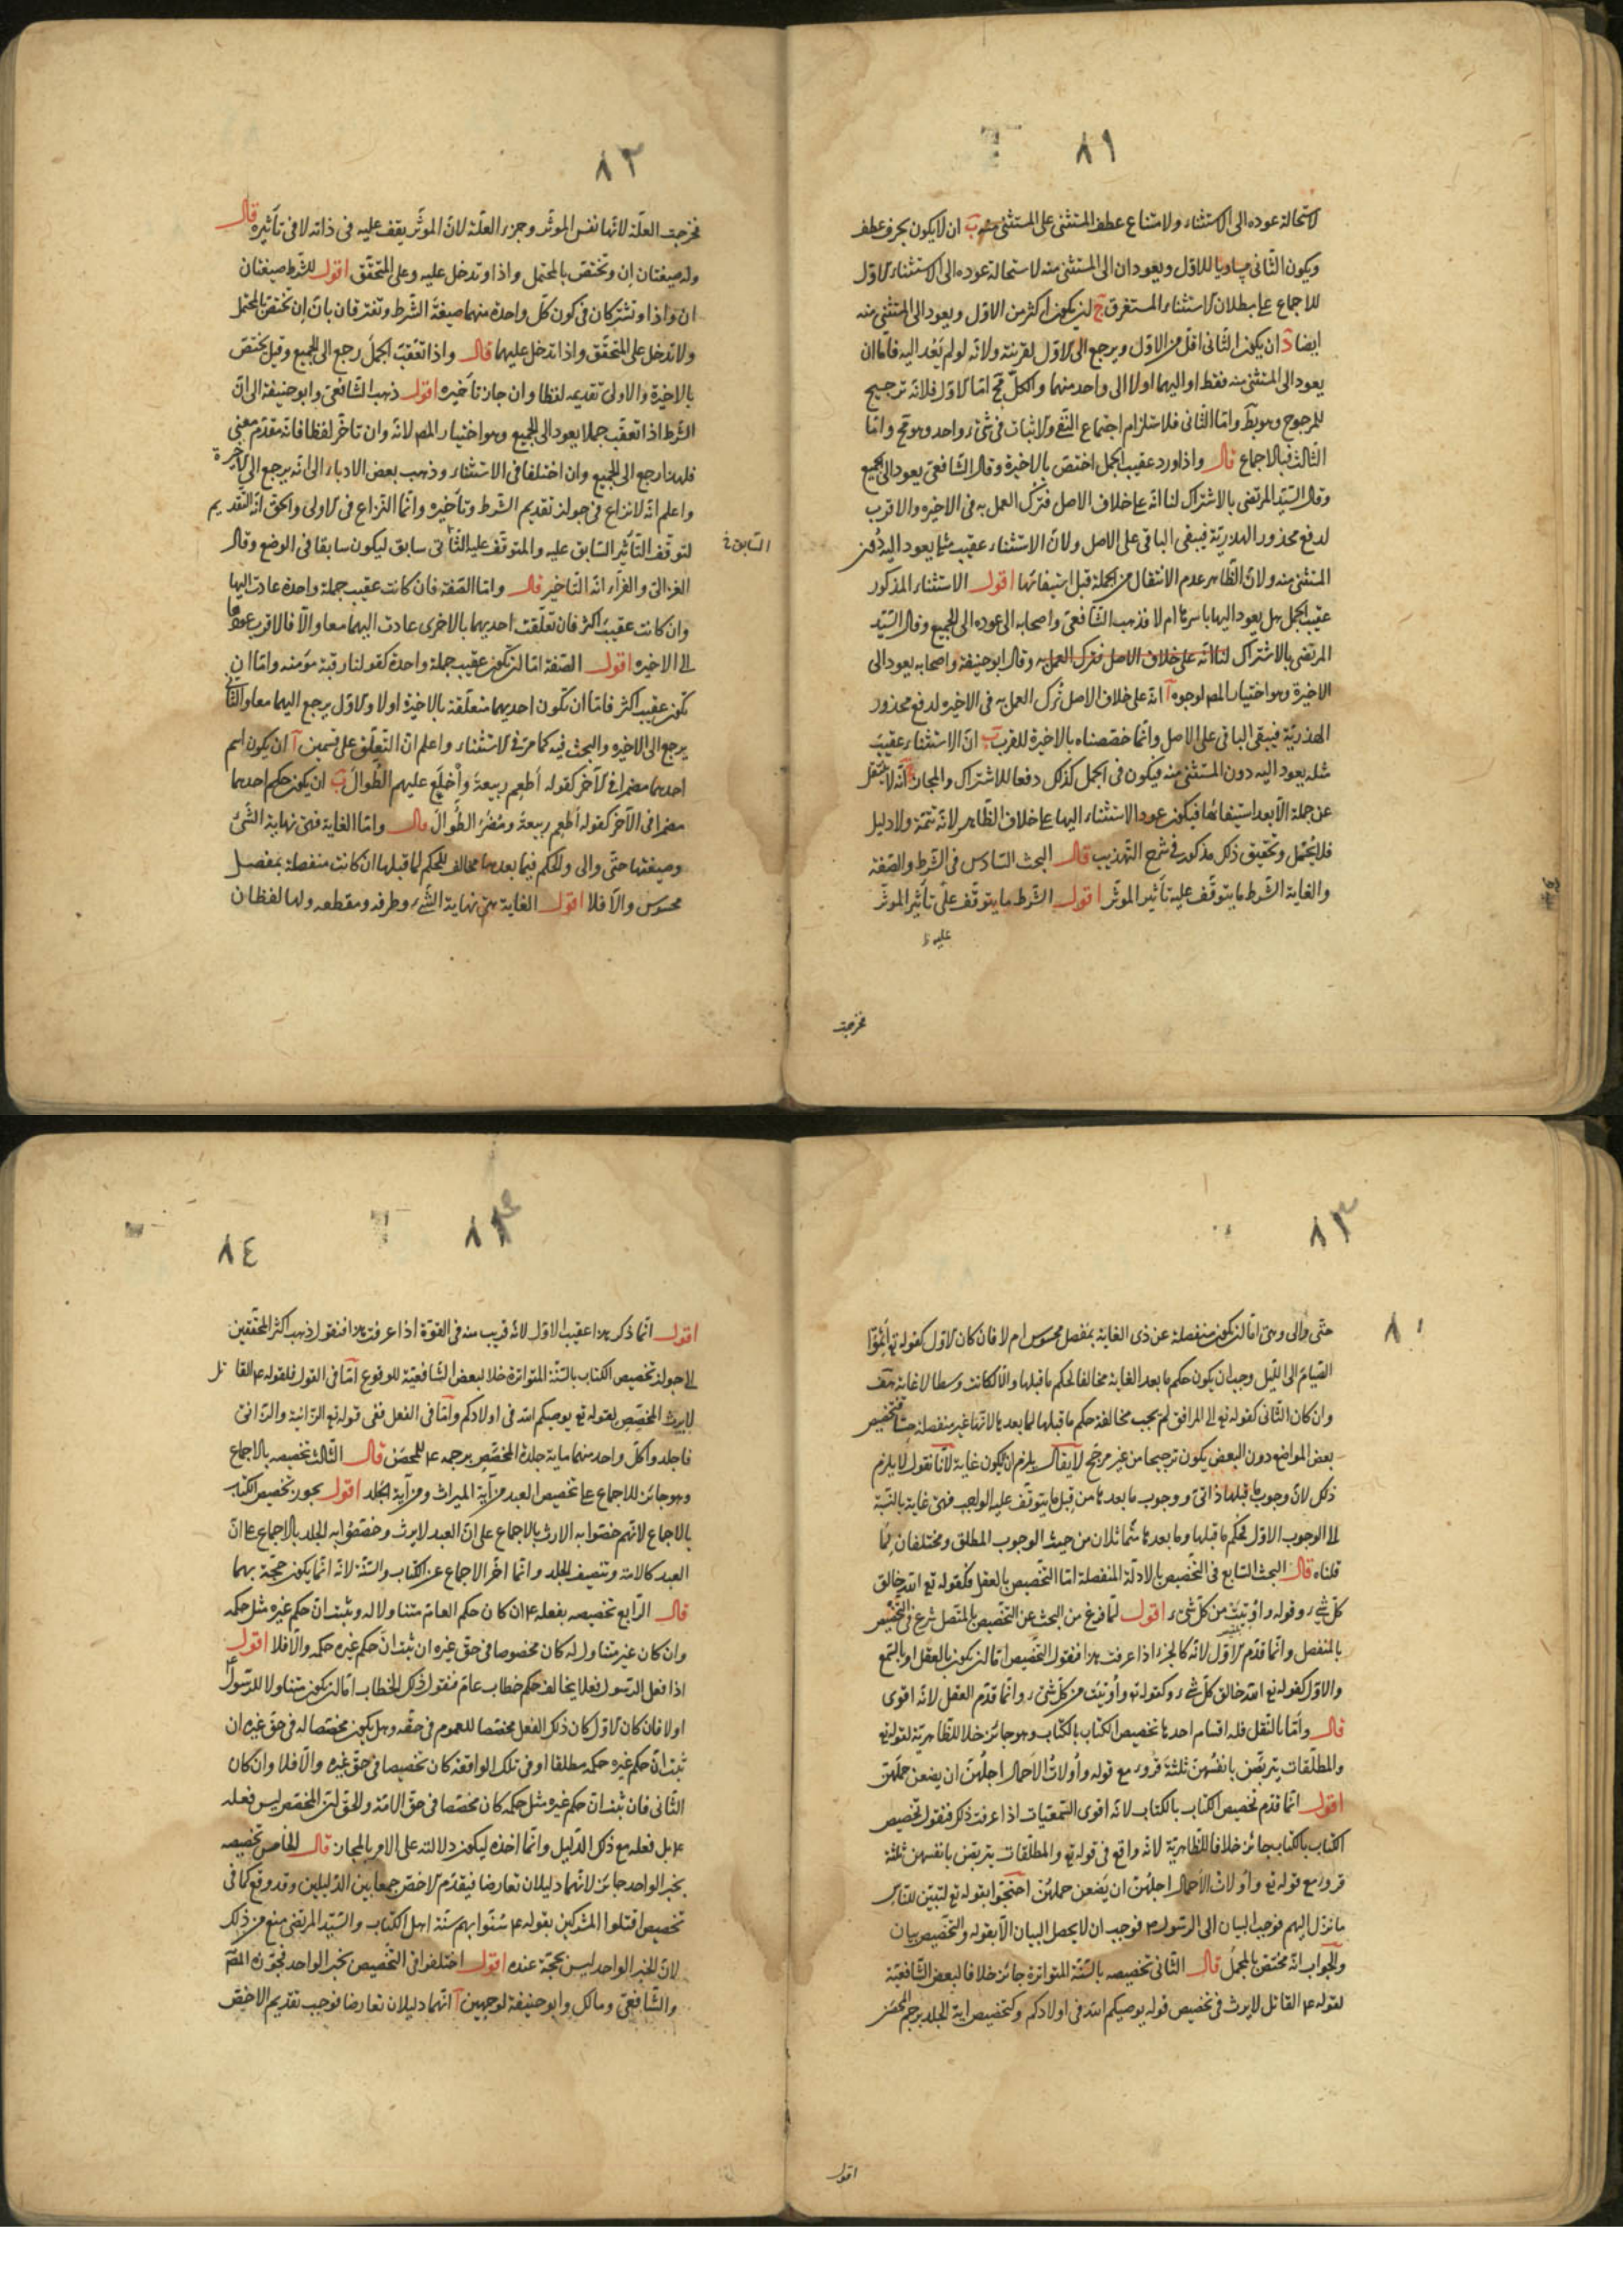 ٨١
لاستحالة عوده الى الاستثناء ولامتناع عطف المستثنى على المستثنى منه ب ان لا يكون بحرف عطف
ويكون الثانى مساويا للاول ويعودان الى المستثنى منه لاستحالة عوده الى الاستثناء الاول
للاجماع على بطلان الاستثناء المستغرق ج ان يكون اكثر من الاول ويعود الى المستثنى منه
ايضا د ان يكون الثانى اقل من الاول ويرجع الى الاول لقربته ولانه لو لم يعد اليه فاما ان
يعود الى المستثنى منه فقط او اليهما او لا الى واحد منهما والكل مح اما الاول فلانه ترجيح
للمرجوح وهو بط واما الثانى فلاستلزام اجتماع النفى والاثبات فى شىء واحد وهو مح واما
الثالث فبالاجماع قال واذا ورد عقيب الجمل اختص بالاخيرة وقال الشافعى يعود الى الجميع
وقال السيد المرتضى بالاشتراك لنا انه على خلاف الاصل فترك العمل به فى الاخيره والاقرب
لدفع محذور الهذرية فيبقى الباقى على الاصل ولان الاستثناء عقيب مثله يعود اليه دون
المستثنى منه ولان الظاهر عدم الانتقال من الجملة قبل استيفائها اقول الاستثناء المذكور
عقيب الجمل هل يعود اليها باسرها ام لا فذهب الشافعى واصحابه الى عوده الى الجميع وقال السيد
المرتضى بالاشتراك لنا انه على خلاف الاصل فترك العمل به وقال ابو حنيفة واصحابه يعود الى
الاخيرة وهو اختيار المص لوجوه آ انه على خلاف الاصل ترك العمل به فى الاخيره لدفع محذور
الهذرية فيبقى الباقى على الاصل وانما خصصناه بالاخيرة للقرب ب ان الاستثناء عقيب
مثله يعود اليه دون المستثنى منه فيكون فى الجمل كذلك دفعا للاشتراك والمجاز ج انه لا ينتقل
عن جملة الا بعد استيفائها فيكون عود الاستثناء اليها على خلاف الظاهر لانه تتمة ولا دليل
فلا يحمل وتحقيق ذلك مذكور فى شرح التهذيب قال البحث السادس فى الشرط والصفة
والغاية الشرط ما يتوقف عليه تأثير الموثر اقول الشرط ما يتوقف على تأثير الموثر
عليه
فخرجت
٨٢
فخرجت العلة لانها نفس الموثر وجزء العلة لان الموثر يقف عليه فى ذاته لا فى تأثيره قال
وله صيغتان إن وتختص بالمحتمل واذا وتدخل عليه وعلى المتحقق اقول للشرط صيغتان
ان واذا وتشتركان فى كون كل واحدة منهما صيغة الشرط وتفترقان بان إن تختص بالمحتمل
ولا تدخل على المتحقق واذا تدخل عليهما قال واذا تعقب الجمل رجع الى الجميع وقيل يختص
بالاخيرة والاولى تقديمه لفظا وان جاز تأخيره اقول ذهب الشافعى وابو حنيفة الى ان
الشرط اذا تعقب جملا يعود الى الجميع وهو اختيار المص لانه وان تاخر لفظا فانه مقدم معنى
فلهذا رجع الى الجميع وان اختلفا فى الاستثناء وذهب بعض الادباء الى انه يرجع الى الاخيرة
واعلم انه لا نزاع فى جواز تقديم الشرط وتأخيره وانما النزاع فى الاولى والحق انه التقديم
لتوقف التأثير السابق عليه والمتوقف عليه الثانى سابق ليكون سابقا فى الوضع وقال
السابق خ
الغزالى والفراء انه التاخير قال واما الصفة فان كانت عقيب جملة واحدة عادت اليها
وان كانت عقيب اكثر فان تعلقت احديهما بالاخرى عادت اليهما معا والا فالاقرب عودها
الى الاخيره اقول الصفة اما ان تكون عقيب جملة واحدة كقولنا رقبة مؤمنه واما ان
تكون عقيب اكثر فاما ان تكون احديهما متعلقة بالاخيرة او لا والاول يرجع اليهما معا والثانى
يرجع الى الاخيره والبحث فيه كما مر فى الاستثناء واعلم ان التعلق على قسمين آ ان يكون اسم
احدهما مضمرا فى الآخر كقوله أطعم ربيعة واخلع عليهم الطوال ب ان يكون حكم احدهما
مضمرا فى الآخر كقوله أطعم ربيعة ومضر الطوال قال واما الغاية فهى نهاية الشىء
وصيغتها حتى والى والحكم فيما بعدها مخالف للحكم لما قبلها ان كانت منفصلة بمفصل
محسوس والا فلا اقول الغاية هى نهاية الشىء وطرفه ومقطعه ولها لفظان
٨٣
٨٠
حتى والى وهى اما ان تكون منفصلة عن ذى الغاية بمفصل محسوس ام لا فان كان الاول كقوله تع أتموا
الصيام الى الليل وجب ان يكون حكم ما بعد الغاية مخالفا لحكم ما قبلها والا لكانت وسطا لا غاية هف
وان كان الثانى كقوله تع الى المرافق لم يجب مخالفة حكم ما قبلها لما بعدها لانها غير منفصلة حسا فتخصيص
بعض المواضع دون البعض يكون ترجيحا من غير مرجح لا يقال يلزم ان لا يكون غاية لانا نقول لا يلزم
ذلك لان وجوب ما قبلها ذاتى ووجوب ما بعدها من قبل ما يتوقف عليه الواجب فهى غاية بالنسبة
الى الوجوب الاول فحكم ما قبلها وما بعدها متماثلان من حيث الوجوب المطلق ومختلفان لما
قلناه قال البحث السابع فى التخصيص بالادلة المنفصلة اما التخصيص بالعقل فكقوله تع الله خالق
كل شىء وقوله وأوتيت من كل شىء اقول لما فرغ من البحث عن التخصيص بالمتصل شرع فى التخصيص
بالمنفصل وانما قدم الاول لانه كالجزء اذا عرفت هذا فنقول التخصيص اما ان يكون بالعقل او بالسمع
والاول كقوله تع الله خالق كل شىء وكقوله تع وأوتيت من كل شىء وانما قدم العقل لانه اقوى
قال واما بالنقل فله اقسام احدها تخصيص الكتاب بالكتاب وهو جائز خلافا للظاهرية لقوله تع
والمطلقات يتربصن بانفسهن ثلثة قروء مع قوله وأولات الاحمال اجلهن ان يضعن حملهن
اقول انما قدم تخصيص الكتاب بالكتاب لانه اقوى السمعيات اذا عرفت ذلك فنقول تخصيص
الكتاب بالكتاب جائز خلافا للظاهرية لانه واقع فى قوله تع والمطلقات يتربصن بانفسهن ثلثة
قروء مع قوله تع وأولات الاحمال اجلهن ان يضعن حملهن احتجوا بقوله تع لتبين للناس
ما نزل اليهم فوجب البيان الى الرسول ص فوجب ان لا يحصل البيان الا بقوله والتخصيص بيان
والجواب انه مختص بالمجمل قال الثانى تخصيصه بالسنة المتواترة جائز خلافا لبعض الشافعية
لقوله ع القاتل لا يرث فى تخصيص قوله يوصيكم الله فى اولادكم وكتخصيص اية الجلد برجم المحصن
اقول
٨٣
٨٤
اقول انما ذكر هذا عقيب الاول لانه قريب منه فى القوة اذا عرفت هذا فنقول ذهب اكثر المحققين
الى جواز تخصيص الكتاب بالسنة المتواترة خلافا لبعض الشافعية للوقوع اما فى القول فلقوله ع القاتل
لا يرث المخصص لقوله تع يوصيكم الله فى اولادكم واما فى الفعل ففى قوله تع الزانية والزانى
فاجلدوا كل واحد منهما ماية جلدة المخصص برجمه ع للمحصن قال الثالث تخصيصه بالاجماع
وهو جائز للاجماع على تخصيص العبد من آية الميراث ومن آية الجلد اقول يجوز تخصيص الكتاب
بالاجماع لانهم خصوا به الارث بالاجماع على ان العبد لا يرث وخصصوا به الجلد بالاجماع على ان
العبد كالامة وتنصيف الجلد وانما اخر الاجماع عن الكتاب والسنة لانه انما يكون حجة بهما
قال الرابع تخصيصه بفعله ع ان كان حكم العام متناولا له وثبت ان حكم غيره مثل حكمه
وان كان غير متناول له كان مخصوصا فى حق غيره ان ثبت ان حكم غيره حكمه والا فلا اقول
اذا فعل الرسول فعلا يخالف حكم خطاب عام فنقول ذلك الخطاب اما ان يكون متناولا للرسول ع
او لا فان كان الاول كان ذلك الفعل مخصصا للعموم فى حقه وهل يكون مخصصا له فى حق غيره ان
ثبت ان حكم غيره حكمه مطلقا او فى تلك الواقعة كان تخصيصا فى حق غيره والا فلا وان كان
الثانى فان ثبت ان حكم غيره مثل حكمه كان مخصصا فى حق الامة والحق ان المخصص ليس فعله
ع بل فعله مع ذلك الدليل وانما اخذه ليكون دلالته على الامر بالمجاز قال الخامس تخصيصه
بخبر الواحد جائز لانهما دليلان تعارضا فيقدم الاخص جمعا بين الدليلين وقد وقع كما فى
تخصيص اقتلوا المشركين بقوله ع سنوا بهم سنة اهل الكتاب والسيد المرتضى منع من ذلك
لان الخبر الواحد ليس بحجة عنده اقول اختلفوا فى التخصيص بخبر الواحد فجوزه المص
والشافعى ومالك وابو حنيفة لوجهين آ انهما دليلان تعارضا فوجب تقديم الاخص